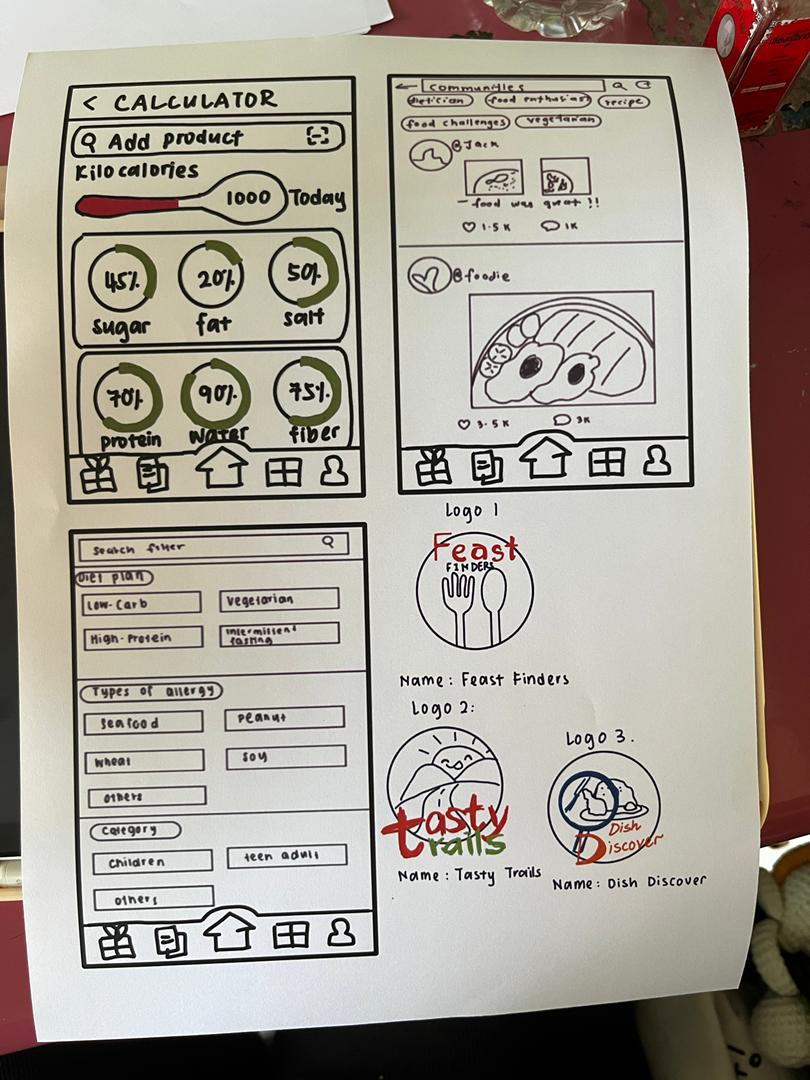 < CALCULATOR
Add product
Kilocalories
1000 Today
45% 20% 50%
sugar fat salt
70% 90% 75%
protein water fiber
communities
dietician food enthusiast recipe
food challenges vegetarian
@Jack
- food was great !!
1.5K 1K
@foodie
3.5K 3K
search filter
Diet plan
Low-Carb Vegetarian
High-Protein Intermittent fasting
Types of allergy
Seafood Peanut
Wheat Soy
others
Category
Children teen adult
others
Logo 1
Feast
FINDERS
Name: Feast Finders
Logo 2:
tasty
trails
Name: Tasty Trails
Logo 3.
Dish
Discover
Name: Dish Discover